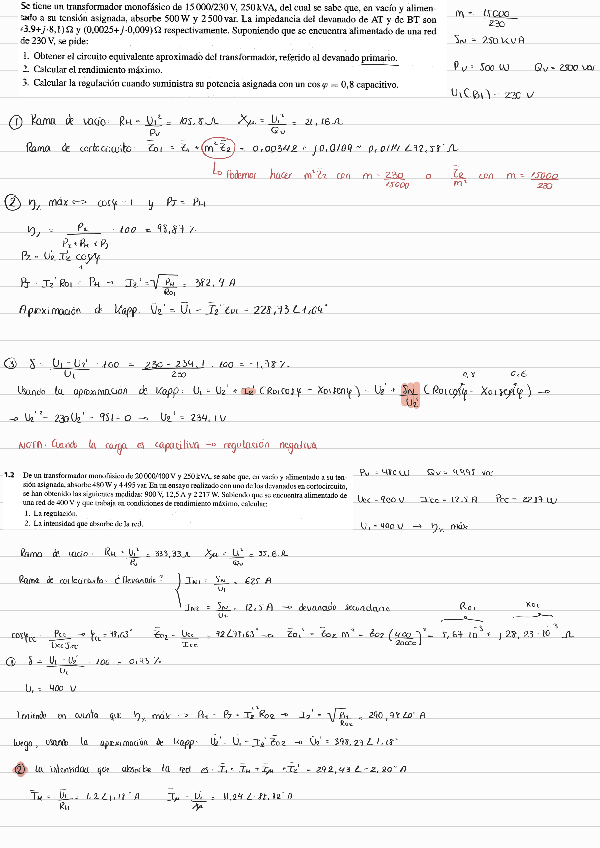 Se tiene un transformador monofásico de 15 000/230 V, 250 kVA, del cual se sabe que, en vacío y alimen-
tado a su tensión asignada, absorbe 500 W y 2 500 var. La impedancia del devanado de AT y de BT son
(3.9+j·8,1) Ω y (0,0025+j·0,009) Ω respectivamente. Suponiendo que se encuentra alimentado de una red
de 230 V, se pide:
1. Obtener el circuito equivalente aproximado del transformador, referido al devanado primario.
2. Calcular el rendimiento máximo.
3. Calcular la regulación cuando suministra su potencia asignada con un cos φ = 0,8 capacitivo.
m = 15000/230
SN = 250 kVA
PV = 500 W QV = 2500 var
U1 (BT) = 230 V
① Rama de vacío: RH = U1²/PV = 105,8 Ω Xμ = U1²/QV = 21,16 Ω
Rama de cortocircuito: Z̄01 = Z̄1 + m² Z̄2 = 0,00342 + j0,0109 = 0,0114 ∠72,58° Ω
↳ Podemos hacer m² Z2 con m = 230/15000 o Z̄2/m² con m = 15000/230
② η, máx ↔ cosφ = 1 y PJ = PH
η, = P2/(P2 + PH + PJ) · 100 = 98,87 %
P2 = U2' I2' cosφ
1
PJ = I2'² R01 = PH → I2' = √(PH/R01) = 382,4 A
Aproximación de Kapp: Ū2' = Ū1 - Ī2' Z̄01 = 228,73 ∠1,04°
③ δ = (U1 - U2')/U1 · 100 = (230 - 234,1)/230 · 100 = -1,78 %
0,8 0,6
Usando la aproximación de Kapp: U1 = U2' + I2' (R01 cosφ - X01 senφ) = U2' + SN/U2' (R01 cosφ - X01 senφ) →
→ U2'² - 230U2' - 951 = 0 → U2' = 234,1 V
NOTA: Cuando la carga es capacitiva → regulación negativa
1.2 De un transformador monofásico de 20 000/400 V y 250 kVA, se sabe que, en vacío y alimentado a su ten-
sión asignada, absorbe 480 W y 4 495 var. En un ensayo realizado con uno de los devanados en cortocircuito,
se han obtenido las siguientes medidas: 900 V, 12,5 A y 2 217 W. Sabiendo que se encuentra alimentado de
una red de 400 V y que trabaja en condiciones de rendimiento máximo, calcular:
1. La regulación.
2. La intensidad que absorbe de la red.
PV = 480 W QV = 4495 var
UCC = 900 V ICC = 12,5 A PCC = 2217 W
U1 = 400 V → η, máx
Rama de vacío: RH = U1²/PV = 333,33 Ω Xμ = U1²/QV = 35,6 Ω
Rama de cortocircuito: ¿Devanado?
IN1 = SN/U1 = 625 A
IN2 = SN/U2 = 12,5 A → devanado secundario
R01 X01
cosφcc = PCC/(UCC ICC) → φcc = 78,63° Z̄02 = UCC/ICC = 72 ∠78,63° → Z̄01 = Z̄02 m² = Z02 (400/20000)² = 5,67·10⁻³ + j28,23·10⁻³ Ω
① δ = (U1 - U2')/U1 · 100 = 0,43 %
U1 = 400 V
Teniendo en cuenta que η, máx → PH = PJ = I2'² R02 → I2' = √(PH/R02) = 290,78 ∠0° A
luego, usando la aproximación de Kapp: Ū2' = U1 - I2' Z̄02 → Ū2' = 398,27 ∠1,18°
② La intensidad que absorbe la red es: Ī1 = ĪH + Īμ + Ī2' = 292,43 ∠-2,20° A
ĪH = Ū1/RH = 1,2 ∠1,18° A Īμ = Ū1/jXμ = 11,24 ∠-88,82° A